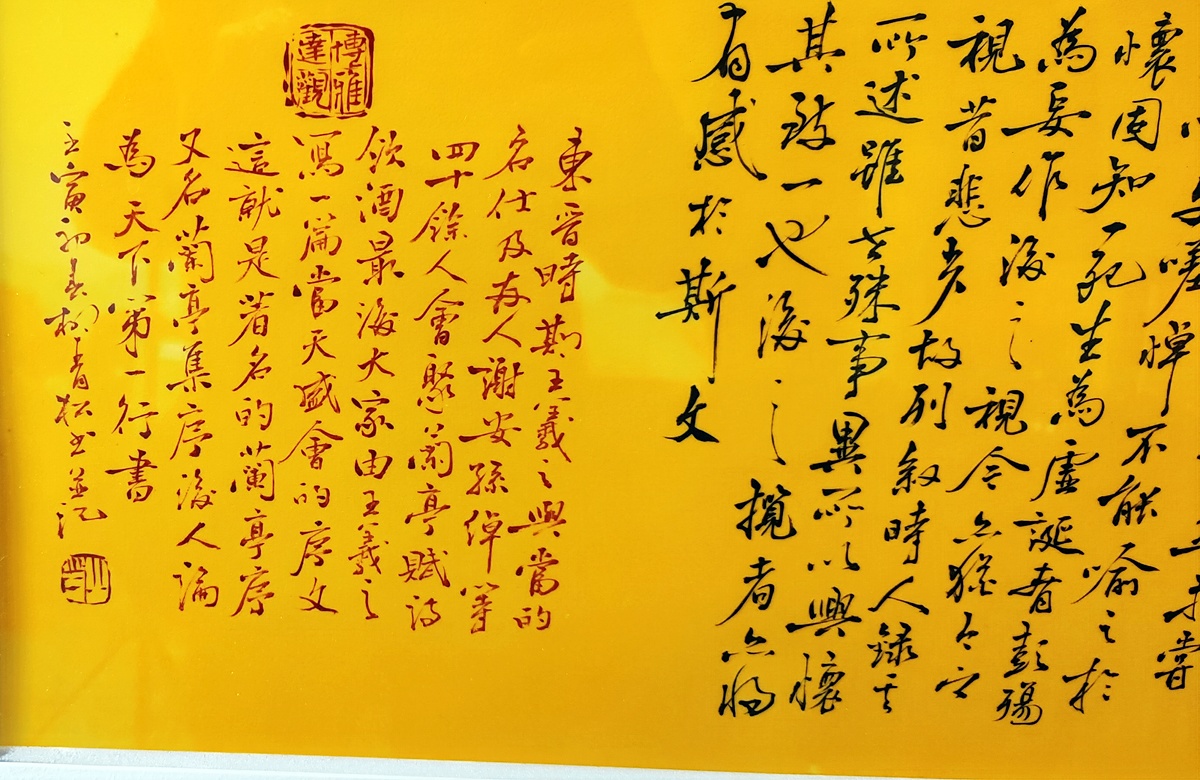 嘗
嗟悼不能喻之於
懷固知一死生為虛誕齊彭殤
為妄作後之視今亦猶今之
視昔悲夫故列敘時人錄其
所述雖世殊事異所以興懷
其致一也後之攬者亦將
有感於斯文
博雅達觀
東晉時期王羲之與當的
名仕及友人謝安孫綽等
四十餘人會聚蘭亭賦詩
飲酒最後大家由王羲之
寫一篇當天盛會的序文
這就是著名的蘭亭序
又名蘭亭集序後人論
為天下第一行書
壬寅初春柳青松書並記